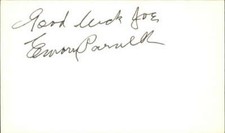 Good luck Joe,
Emory Parnell